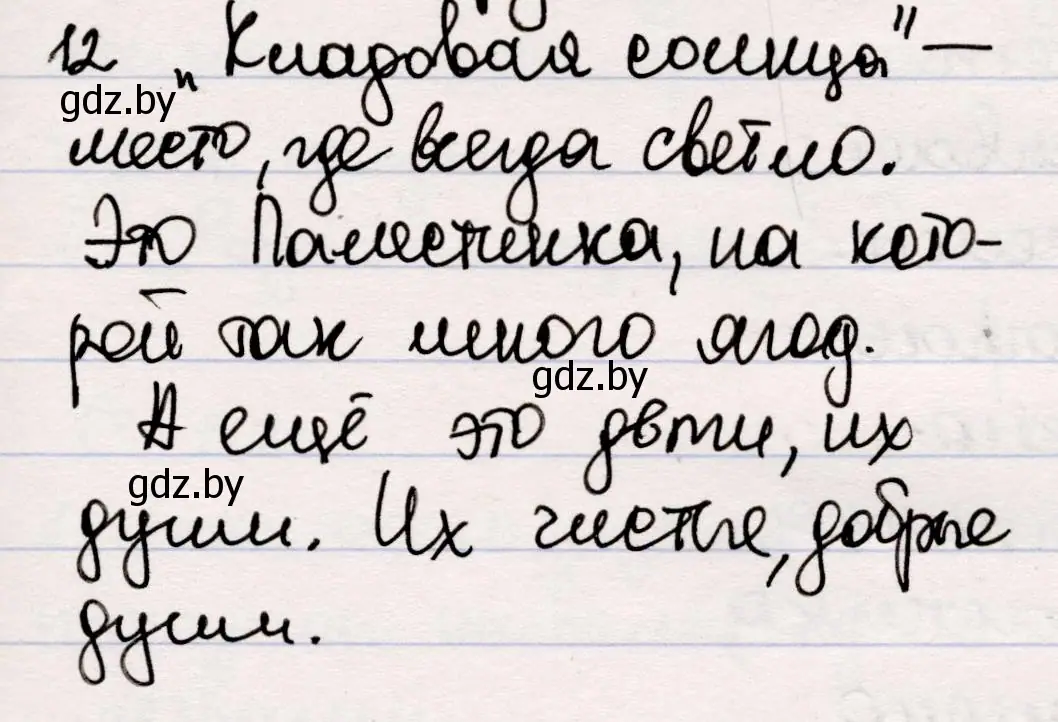 12 „Кладовая солнца" —
gdz.by
место, где всегда светло.
Это Палестинка, на кото-
рой так много ягод.
gdz.by
А ещё это дети, их
gdz.by
души. Их чистые, добрые
души.